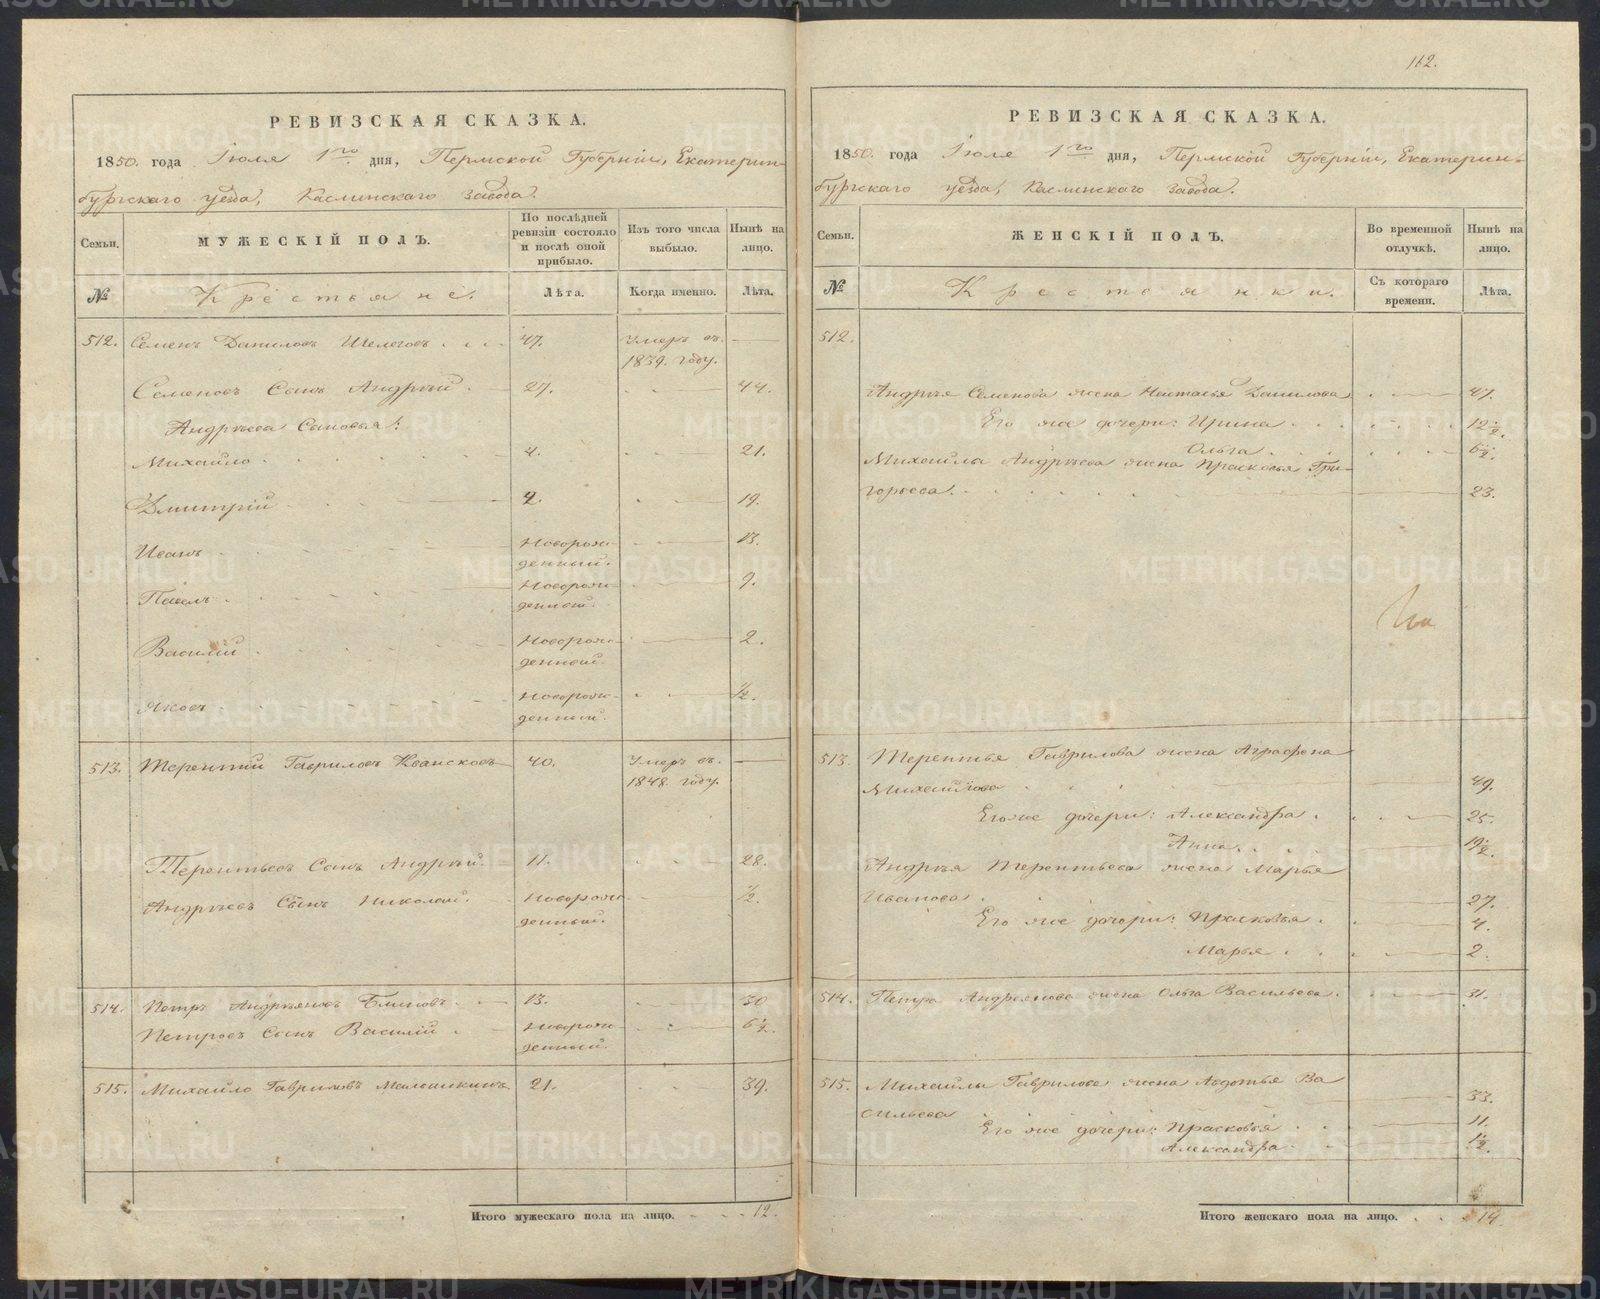 162.
РЕВИЗСКАЯ СКАЗКА.
1850. года Іюля 1го дня, Пермской Губерніи, Екатерин-
бургскаго уезда, Каслинскаго Завода.
Семьи.
МУЖЕСКІЙ ПОЛЪ.
По послѣдней ревизіи состояло и послѣ оной прибыло.
Изъ того числа выбыло.
Нынѣ на лицо.
№
Крестьяне.
Лѣта.
Когда именно.
Лѣта.
512. Семенъ Даниловъ Шелеговъ 47. Умеръ въ
1839. году.
Семеновъ Сынъ Андрѣй 27. 44.
Андрѣева Сыновья:
Михайло 4. 21.
Дмитрій 2. 19.
Иванъ Новорож- 13.
денный.
Павелъ Новорож- 9.
денный.
Василій Новорож- 2.
денный.
Яковъ Новорож- ½.
денный.
513. Терентій Гавриловъ 40. Умеръ въ
1848. году.
Терентьевъ Сынъ Андрѣй 11. 28.
Андрѣевъ Сынъ Николай Новорож- ½.
денный.
514. Петръ Андрѣяновъ Блиновъ 13. 30
Петровъ Сынъ Василій Новорож- 6½.
денный.
515. Михайло Гавриловъ Малышкинъ 21. 39.
Итого мужескаго пола на лицо. 12.
РЕВИЗСКАЯ СКАЗКА.
1850. года Іюля 1го дня, Пермской Губерніи, Екатерин-
бургскаго уезда, Каслинскаго Завода.
Семьи.
ЖЕНСКІЙ ПОЛЪ.
Во временной отлучкѣ.
Нынѣ на лицо.
№
Крестьянки.
Съ котораго времени.
Лѣта.
512.
Андрѣя Семенова жена Наталья Данилова 47.
Его же дочери: Ирина 12½.
Ольга 6½.
Михайлы Андрѣева жена Прасковья Гри-
горьева 23.
513. Терентья Гаврилова жена Аграфена
Михайлова 49.
Его же дочери: Александра 25.
Анна 19½.
Андрѣя Терентьева жена Марья
Иванова 27.
Его же дочери: Прасковья 4.
Марья 2.
514. Петра Андреянова жена Ольга Васильева 31.
515. Михайлы Гаврилова жена Авдотья Ва
сильева 33.
Его же дочери: Прасковья 11.
Александра 1½.
Итого женскаго пола на лицо. 14.
METRIKI.GASO-URAL.RU